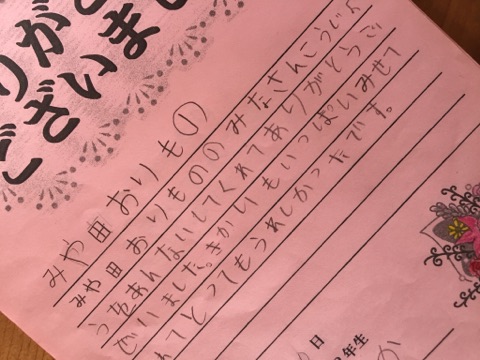 りがと
ございまし
みや田おりもの①
みや田おりもののみなさんこうじょ
うをあんないしてくれてありがとうご
ざいました。きかいもいっぱいみせて
れてとってもうれしかったです。
月
年生
か